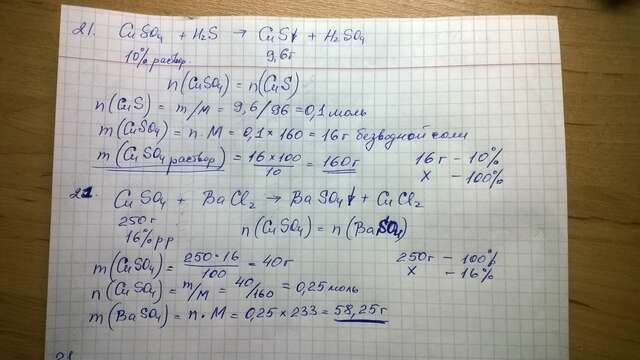 21. CuSO₄ + H₂S → CuS↓ + H₂SO₄
10% раствор 9,6г
n(CuSO₄) = n(CuS)
n(CuS) = m/M = 9,6/96 = 0,1 моль
m(CuSO₄) = n·M = 0,1 × 160 = 16г безводной соли
m(CuSO₄ раствор) = 16×100/10 = 160г 16г – 10%
x – 100%
CuSO₄ + BaCl₂ → BaSO₄↓ + CuCl₂
250г
16% рр n(CuSO₄) = n(BaSO₄)
m(CuSO₄) = 250·16/100 = 40г 250г – 100%
x – 16%
n(CuSO₄) = m/M = 40/160 = 0,25 моль
m(BaSO₄) = n·M = 0,25 × 233 = 58,25г